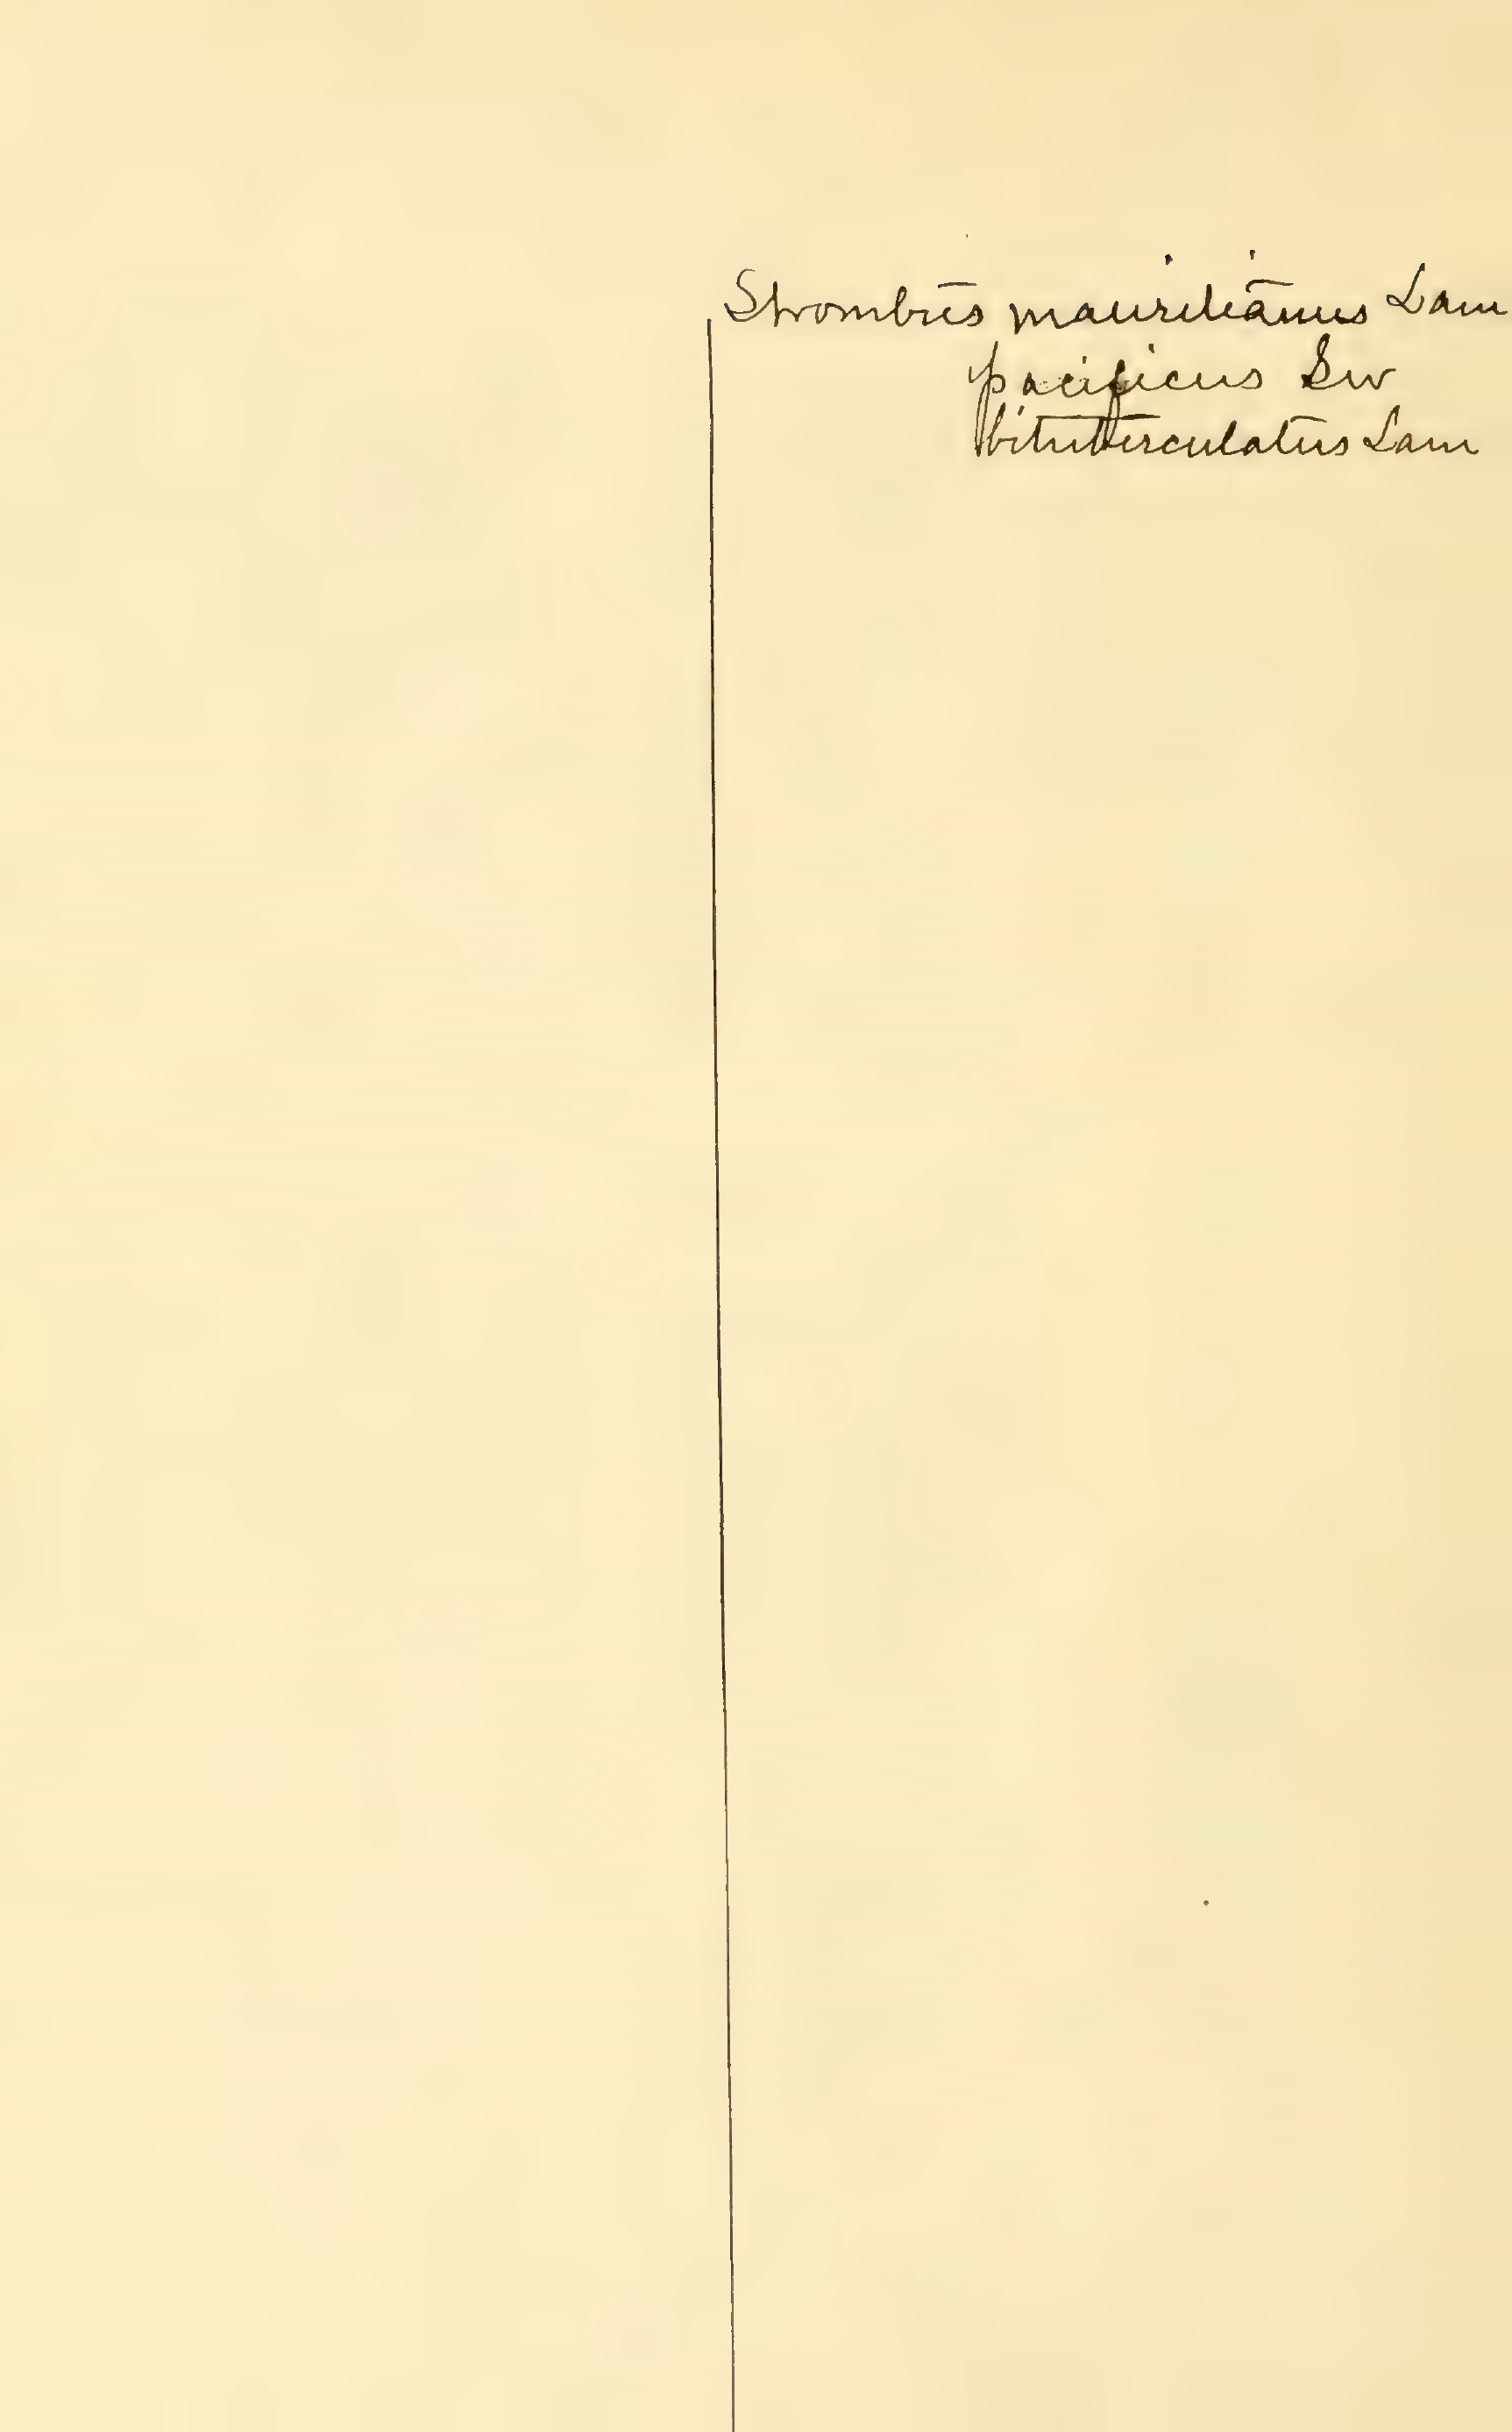 Strombus mauritianus Lam
pacificus Sw
bituberculatus Lam